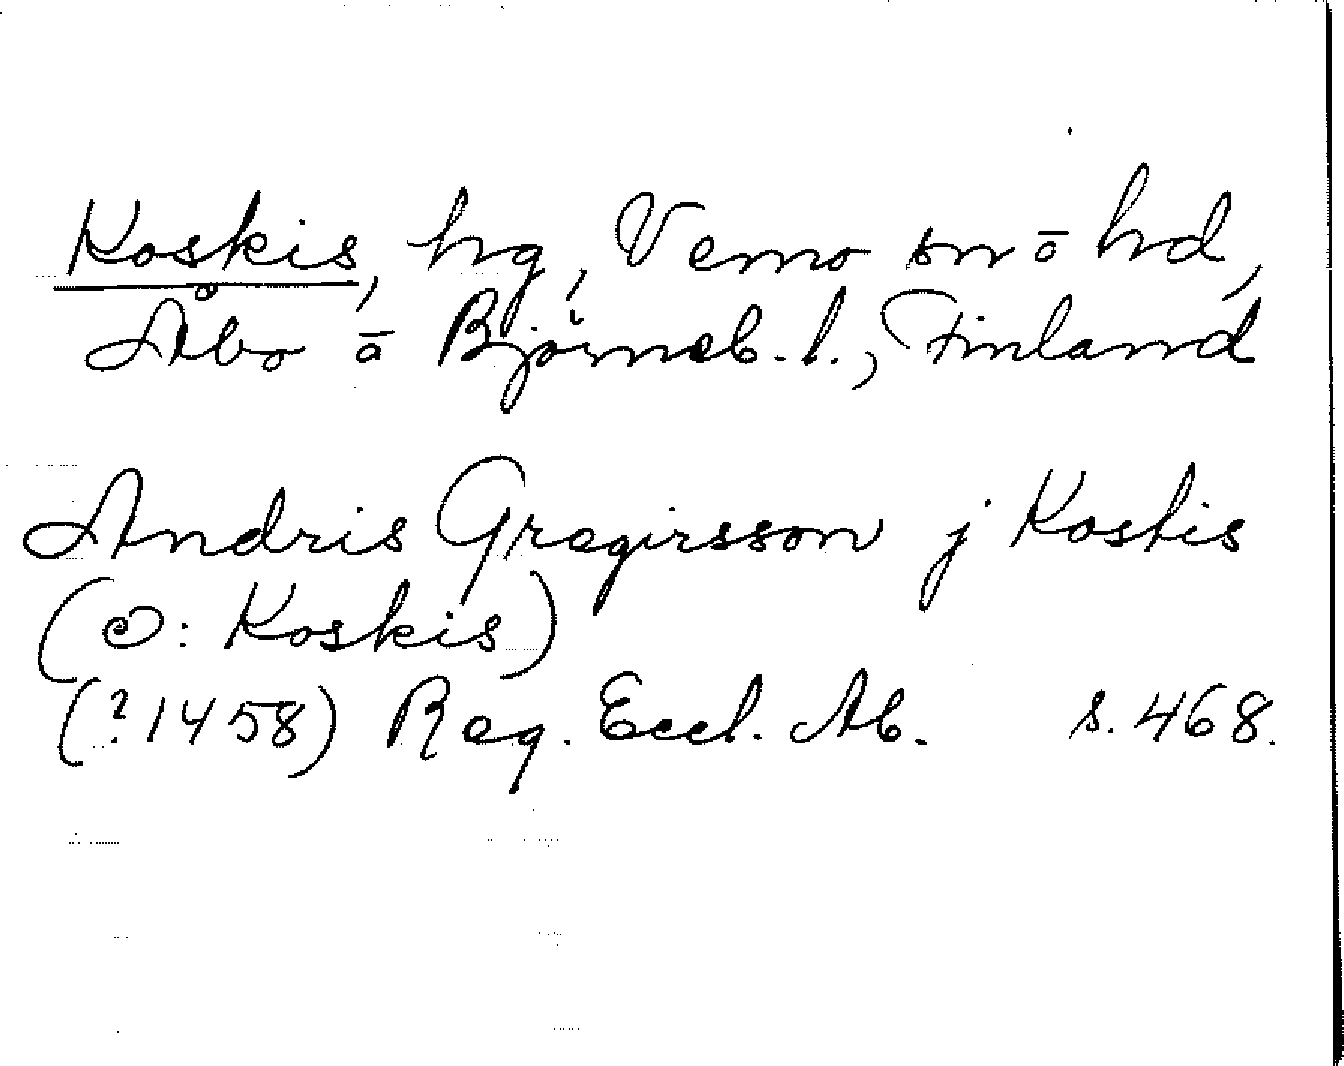 Koskis, hg, Vemo sn ō hd,
Åbo ā Björneb. l., Finland
Andris Gregirsson j Koskis
(ɔ: Koskis)
(?1458) Reg. Eccl. Ab. s. 468.